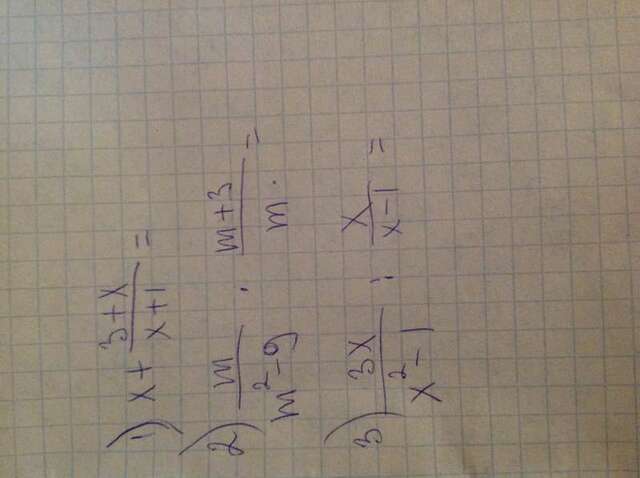 1) x + (3+x)/(x+1) =
2) m/(m²-9) · (m+3)/m =
3) 3x/(x²-1) : x/(x-1) =